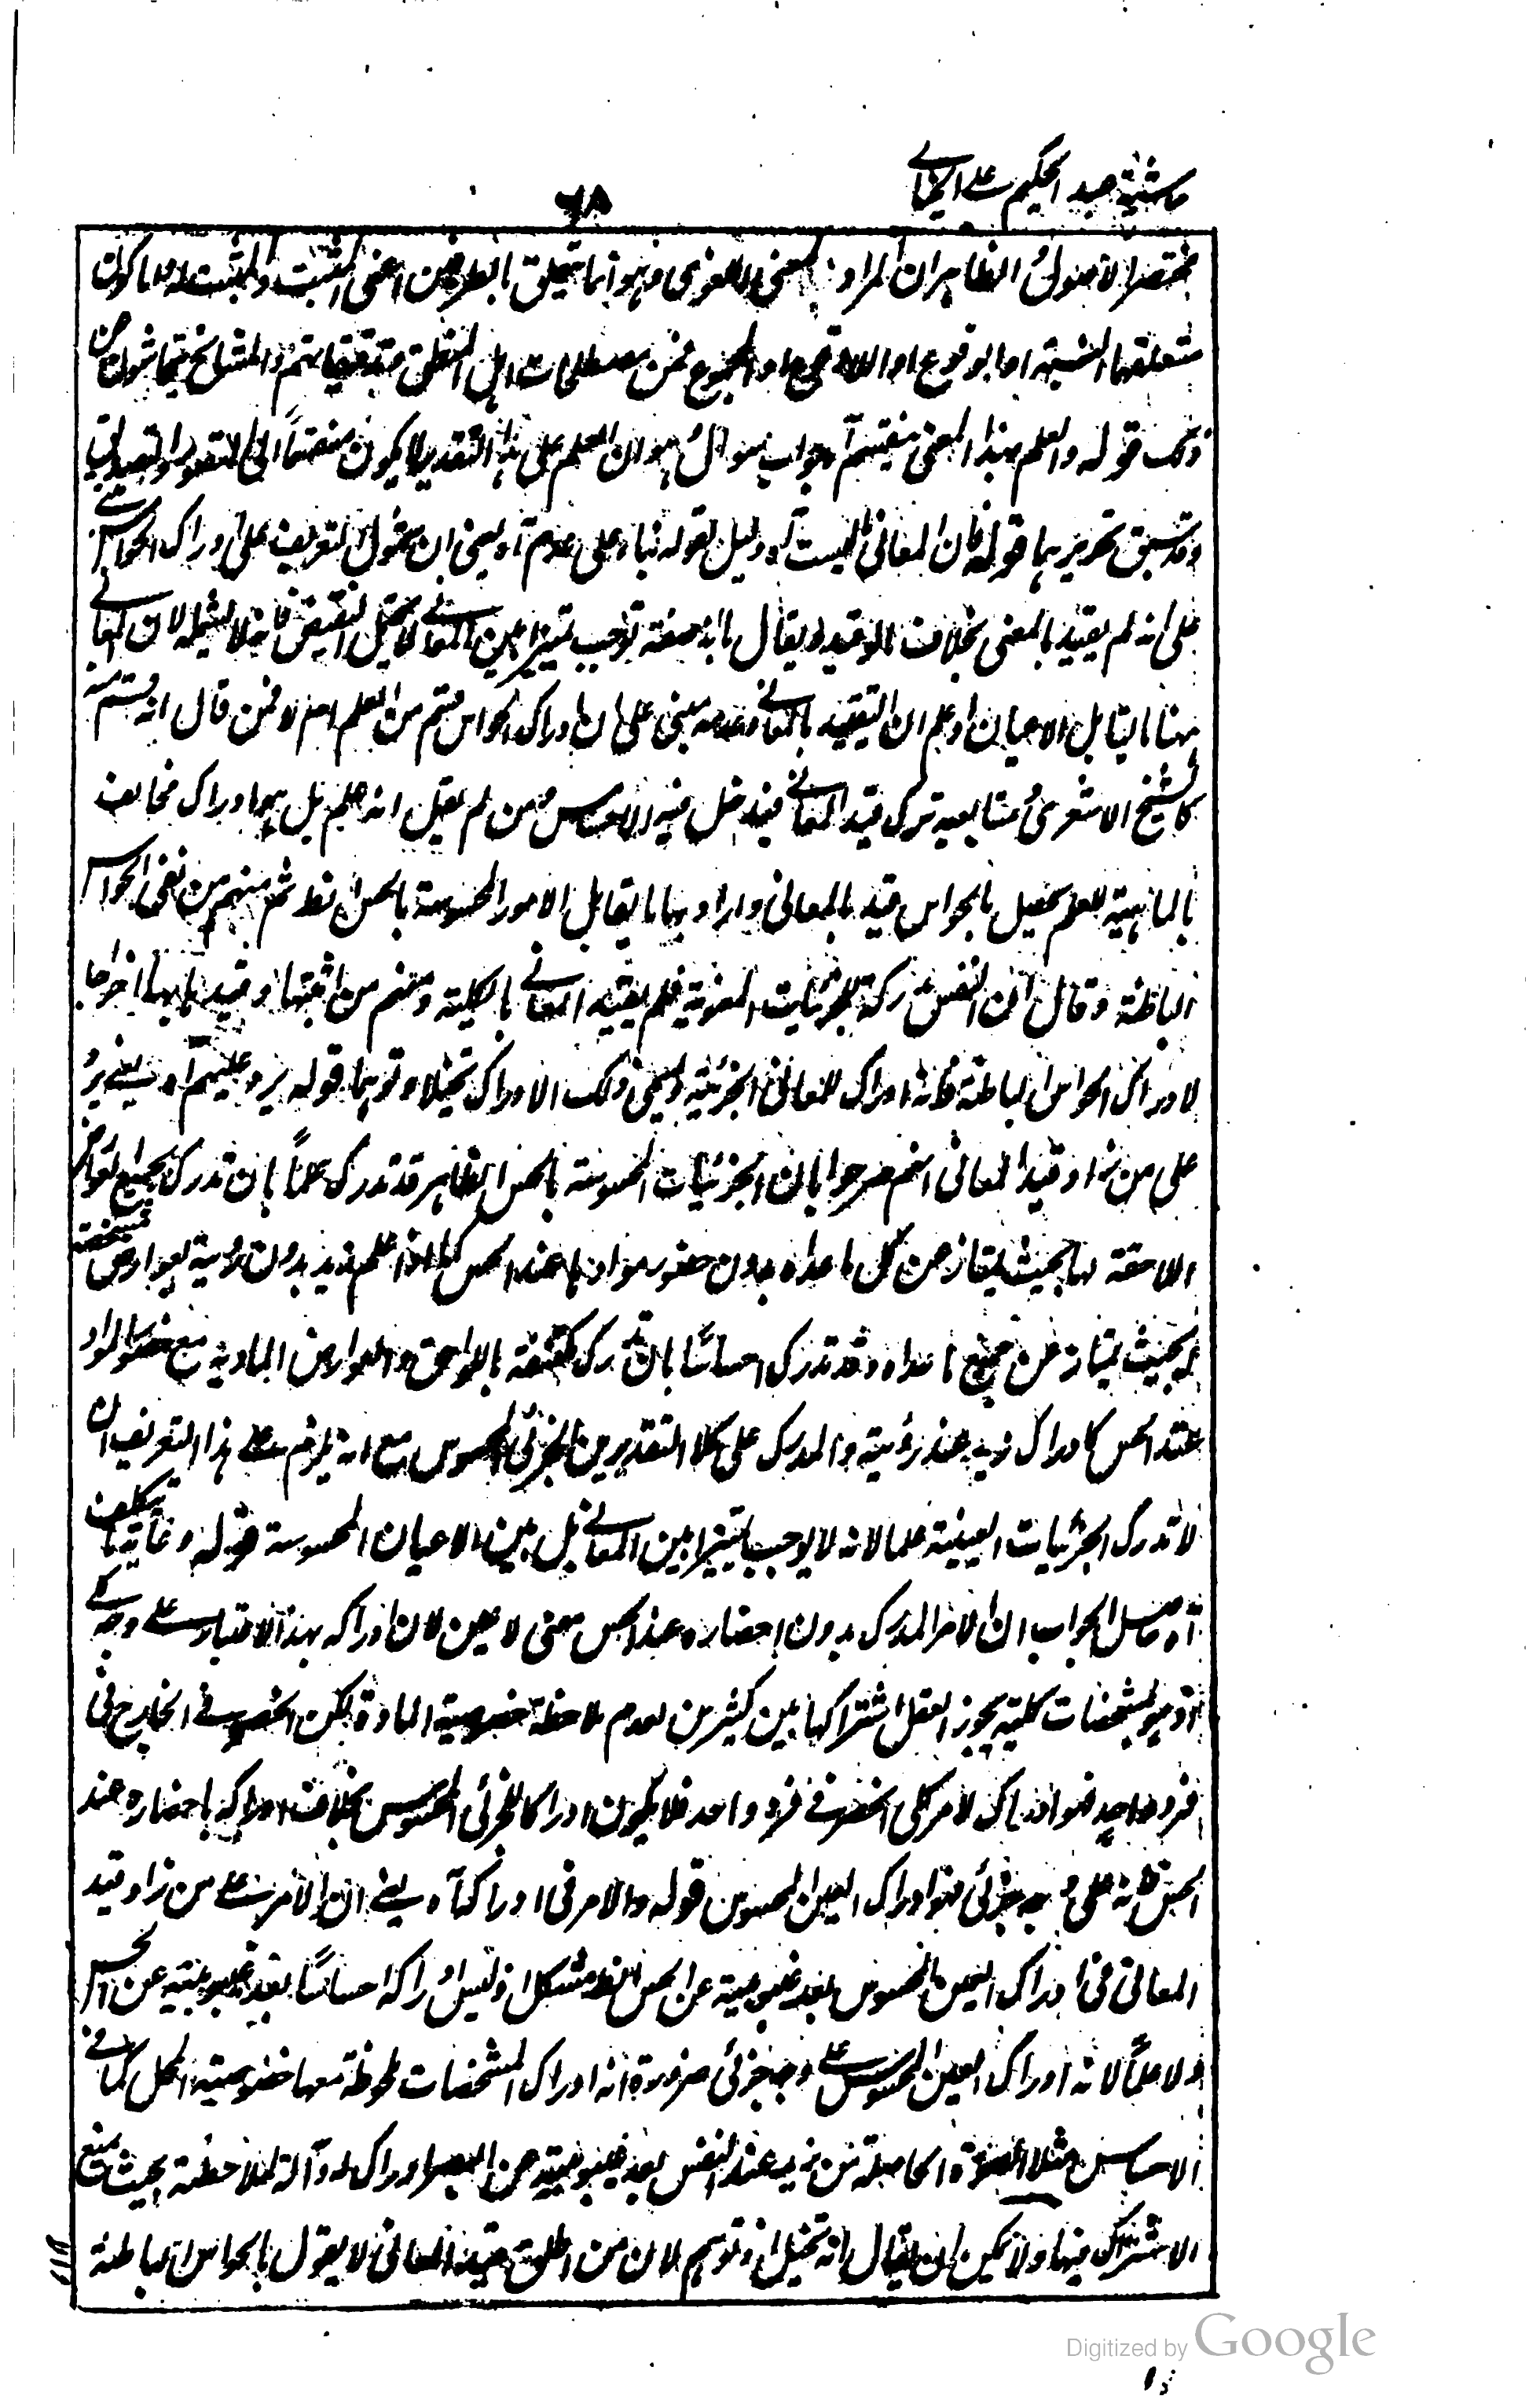 حاشية عبد الحكيم على الخيالي
٦٨
مختصر الاصول الظاهر ان المراد بالمعنى اللغوى وهو انما يتعلق بالطرفين اعنى المثبت والمثبت له واما كون
متعلقها النسبة او الوقوع او اللاوقوع او المجموع فمن مصطلحات اهل المنطق وتدقيقاتهم والمشايخ يتحاشون عن
ذلك قوله والعلم بهذا المعنى ينقسم آه جواب سوال هو ان العلم على هذا التقدير لا يكون منقسما الى التصور والتصديق
وقد سبق تحريرهما قوله فان المعانى ليست آه دليل لقوله بناء على عدم آه يعنى ان شمول التعريف على ادراك الحواس مبنى
على انه لم يقيد بالمعنى بخلاف ما لو قيد ويقال بانه صفة توجب تمييزا بين المعانى لا يحتمل النقيض فانه لا يشمله لان المعانى
ههنا ما يقابل الاعيان اعلم ان التقييد بالمعانى وعدمه مبنى على ان ادراك الحواس قسم من العلم ام لا فمن قال انه قسم منه
كالشيخ الاشعرى ومتابعيه ترك قيد المعانى فيدخل فيه الاحساس ومن لم يقل انه علم بل هو ادراك مخالف
بالماهية للعلم يحصل بالحواس قيد بالمعانى واراد بها ما يقابل الامور المحسوسة بالحس الظ ثم منهم من نفى الحواس
الباطنة وقال ان النفس مدركة للجزئيات المعنوية فلم يقيد المعانى بالكلية ومنهم من اثبتها وقيد بها اخراجا
لادراك الحواس الباطنة فانه ادراك للمعانى الجزئية ويسمى ذلك الادراك تخيلا وتوهما قوله يرد عليهم آه يعنى يرد
على من زاد قيد المعانى انهم صرحوا بان الجزئيات المحسوسة بالحس الظاهر قد تدرك علما بان تدرك بجميع العوارض
اللاحقة لها بحيث يمتاز عن كل ما عداه بدون حضور موادها عند الحس كما اذا علم زيد بدون رؤية بعوارض مشخصة
له بحيث يمتاز عن جميع ما عداه وقد تدرك احساسا بان تدرك مكتنفة باللواحق والعوارض المادية مع حضور المواد
عند الحس كادراك زيد عند رؤيته والمدرك على كلا التقديرين الجزئى المحسوس مع انه يلزم على هذا التعريف ان
لا تدرك الجزئيات العينية علما لانه لا يوجب تمييزا بين المعانى بل بين الاعيان المحسوسة قوله وغاية ما يتكلف
آه حاصل الجواب ان الامر المدرك بدون احضاره عند الحس معنى لا عين لان ادراكه بهذا الاعتبار على وجه كلى
اذ هو بمشخصات كلية يجوز العقل اشتراكها بين كثيرين لعدم ملاحظة خصوصية المادة لكن انحصر فى الخارج فى
فرد واحد فهو ادراك لامر كلى انحصر فى فرد واحد فلا يكون ادراكا للجزئى المحسوس بخلاف ادراكه باحضاره عند
الحس فانه على وجه جزئى فهو ادراك العين المحسوس قوله والامر فى ادراكه آه يعنى ان الامر على من زاد قيد
المعانى فى ادراك العين المحسوس بعد غيبوبته عن الحس الظ مشكل اذ ليس ادراكه احساسا بعد غيبوبته عن الحس
ولا علما لانه ادراك العين المحسوس على وجه جزئى ضرورة انه ادراك المشخصات ملحوظة معها خصوصية المحل كما فى
الاحساس مثلا الصورة الحاصلة من زيد عند النفس بعد غيبوبته عن البصر ادراك له وآلة لملاحظته بحيث يمنع
الاشتراك فيها ولا يمكن ان يقال انه تخيل او توهم لان من اطلق قيد المعانى لا يقول بالحواس الباطنة
Digitized by Google